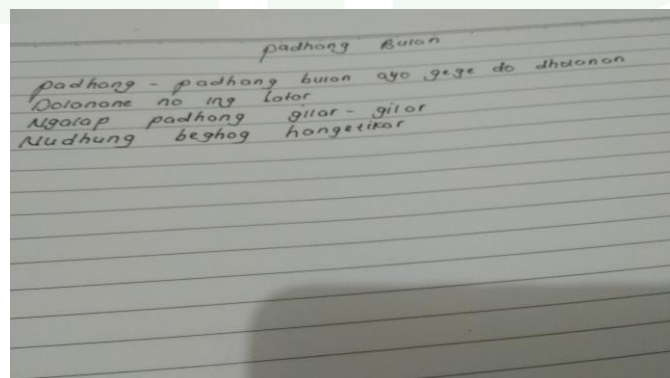 padhang Bulan
padhang - padhang bulan ayo gege do dholanan
Dolanane no ing lator
Ngalap padhong gilar - gilar
Mudhung beghog hangetikar